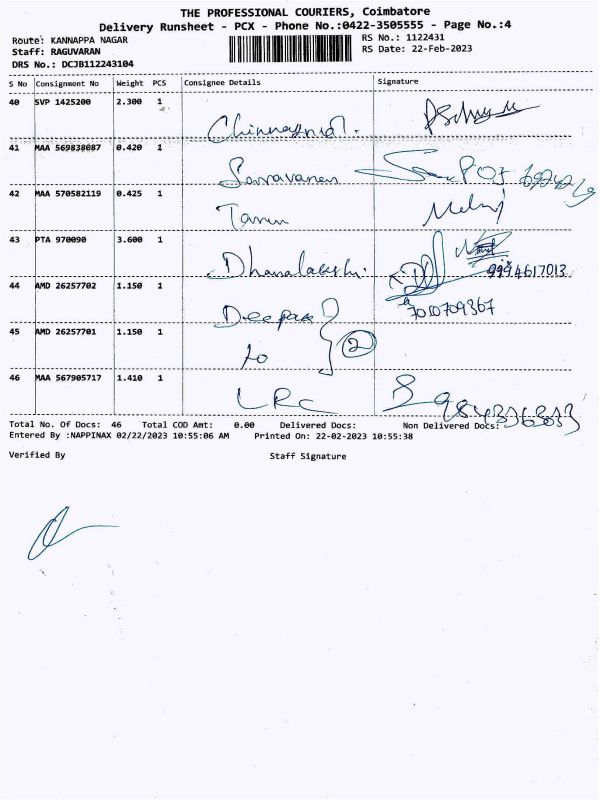 THE PROFESSIONAL COURIERS, Coimbatore
Delivery Runsheet - PCX - Phone No.:0422-3505555 - Page No.:4
Route: KANNAPPA NAGAR RS No.: 1122431
Staff: RAGUVARAN RS Date: 22-Feb-2023
DRS No.: DCJB112243104
S No Consignment No Weight PCS Consignee Details Signature
40 SVP 1425200 2.300 1
41 MAA 569838087 0.420 1 Saravanan
42 MAA 570582119 0.425 1 Tarun
43 PTA 970090 3.600 1 Dhanalakshi. 9994617013
44 AMD 26257702 1.150 1 Deepak 7010709367
45 AMD 26257701 1.150 1 to 2
46 MAA 567905717 1.410 1 LRC
Total No. Of Docs: 46 Total COD Amt: 0.00 Delivered Docs: Non Delivered Docs:
Entered By :NAPPINAX 02/22/2023 10:55:06 AM Printed On: 22-02-2023 10:55:38
Verified By Staff Signature